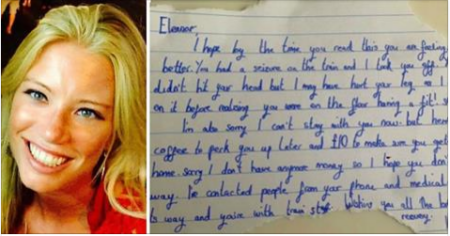 Eleanor,
I hope by the time you read this you are feeling
better. You had a seizure on the train and I took you off
didn't hit your head but I may have hurt your leg as I
on it before realising you were on the floor having a fit! s
Im also sorry I can't stay with you now. but here
coffee to perk you up later and £10 to make sure you get
home sorry I don't have anymore money so I hope you don
way. Ive contacted people from your phone and medical
is way and you're with train st wishing you all the be
recovery.